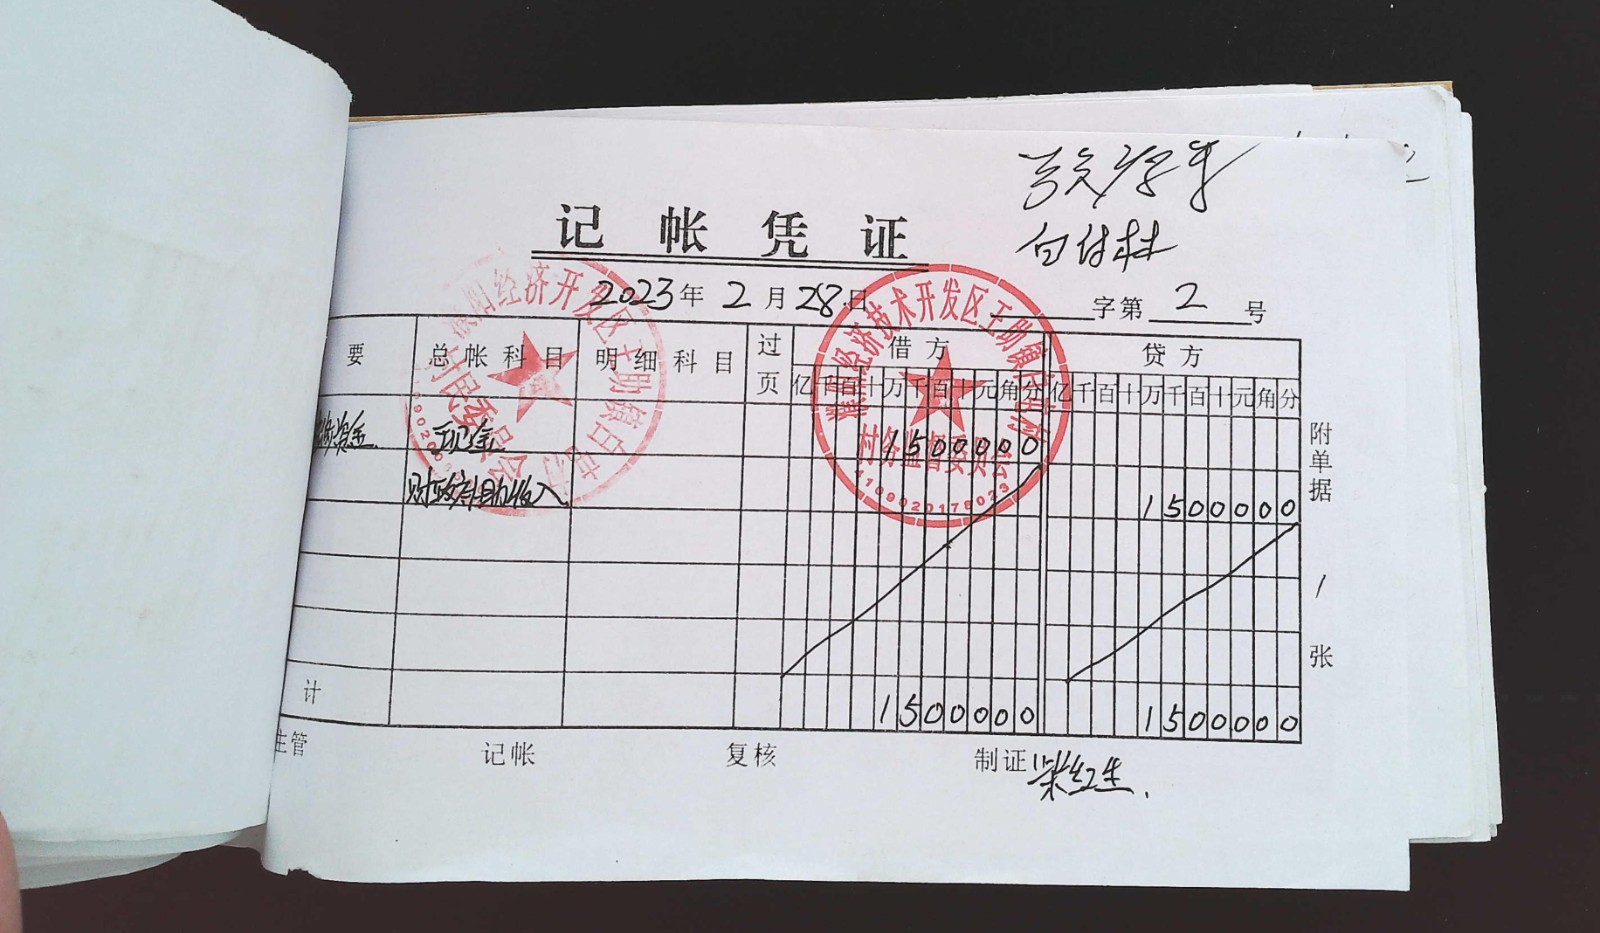 记帐凭证
白付林
2023年2月28日
字第2号
要 总帐科目 明细科目 过页 借方 贷方
亿千百十万千百十元角分 亿千百十万千百十元角分
资金 现金 1500000
财政补助收入 1500000
计 1500000 1500000
附单据1张
主管 记帐 复核 制证
经济开发区王助镇
村民委员会
经济技术开发区王助镇
村务监督委员会